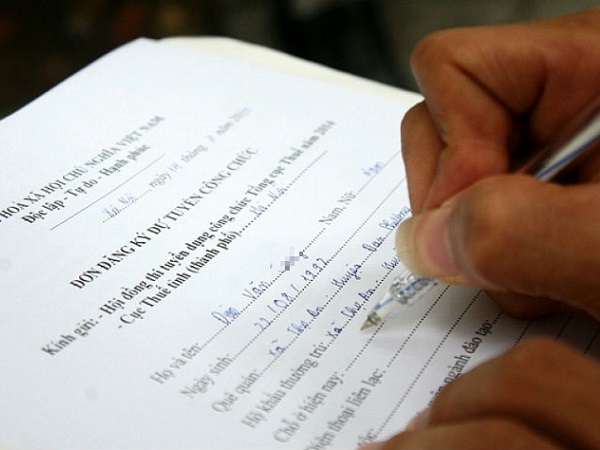 HÒA XÃ HỘI CHỦ NGHĨA VIỆT NAM
Độc lập - Tự do - Hạnh phúc
Hà Nội ngày 14 tháng năm
ĐƠN ĐĂNG KÝ DỰ TUYỂN CÔNG CHỨC
Kính gửi: - Hội đồng thi tuyển dụng công chức Tổng cục Thuế năm 2014
- Cục Thuế tỉnh (thành phố) Hà Nội
Họ và tên: Văn Nam, Nữ: Nam
Ngày sinh: 22/08/1992
Quê quán: Xã Huyện Đan Phượng
Hộ khẩu thường trú: Xã
Chỗ ở hiện nay:
Điện thoại liên lạc:
tộc:
ngành đào tạo: